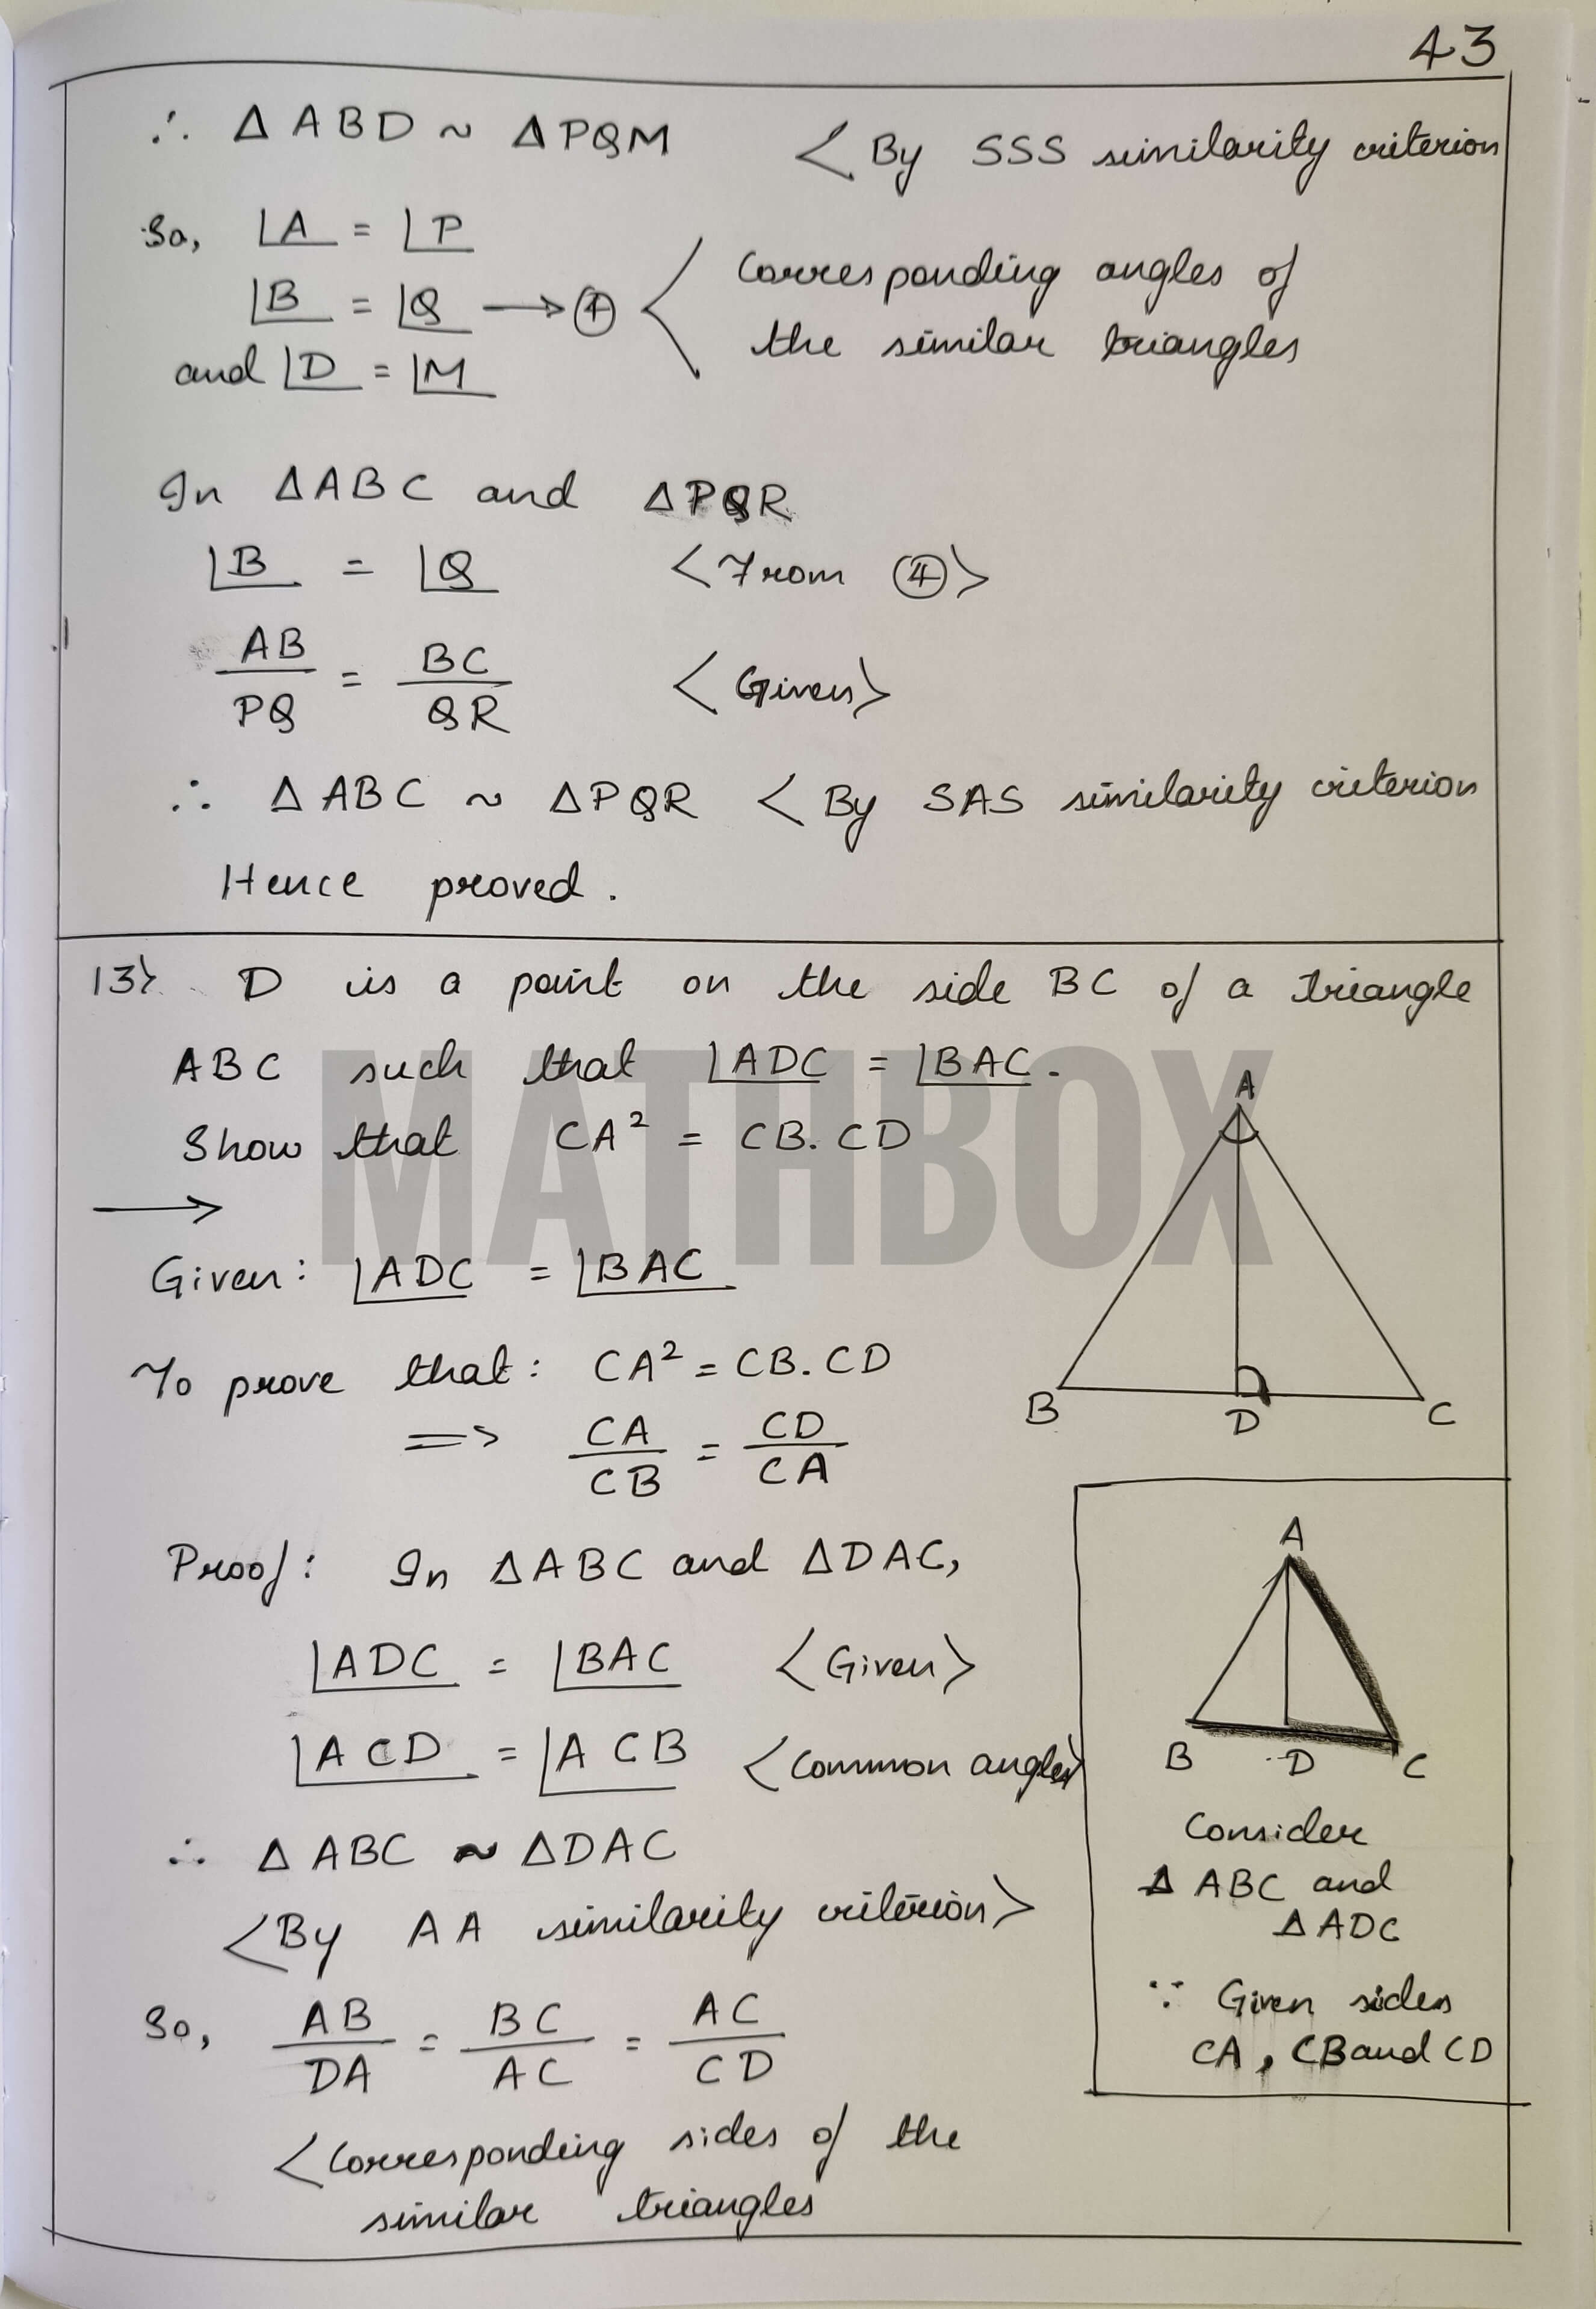 43
∴ Δ ABD ~ Δ PQM < By SSS similarity criterion
So, ∠A = ∠P
∠B = ∠Q → ④ < Corresponding angles of
the similar triangles
and ∠D = ∠M
In ΔABC and ΔPQR
∠B = ∠Q <From ④>
AB/PQ = BC/QR <Given>
∴ Δ ABC ~ ΔPQR < By SAS similarity criterion
Hence proved.
13) D is a point on the side BC of a triangle
ABC such that ∠ADC = ∠BAC.
Show that CA² = CB.CD
→
Given: ∠ADC = ∠BAC
To prove that: CA² = CB.CD
=> CA/CB = CD/CA
A
B D C
Proof: In ΔABC and ΔDAC,
∠ADC = ∠BAC <Given>
∠ACD = ∠ACB <Common angles>
∴ Δ ABC ~ ΔDAC
<By AA similarity criterion>
So, AB/DA = BC/AC = AC/CD
<Corresponding sides of the
similar triangles
A
B D C
Consider
Δ ABC and
Δ ADC
∵ Given sides
CA, CB and CD
MATHBOX